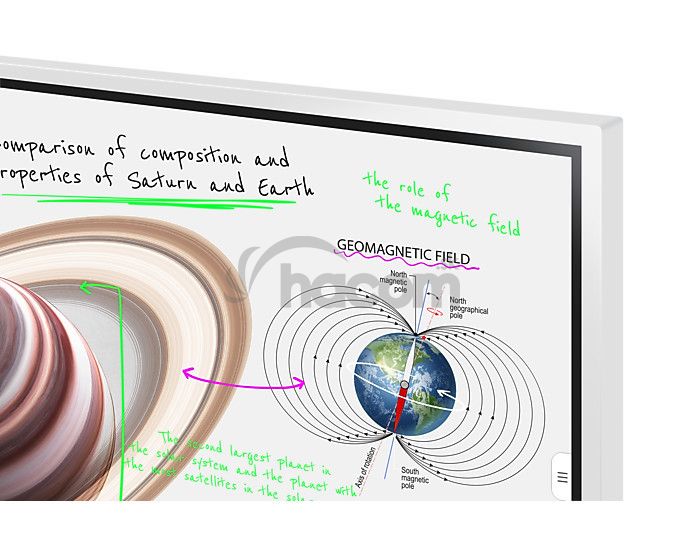 omparison of composition and
roperties of Saturn and Earth
the role of
the magnetic field
GEOMAGNETIC FIELD
North
magnetic
pole
North
geographical
pole
hacom
The second largest planet in
the solar system and the planet with
the most satellites in the sola
Axis of rotation
South
magnetic
pole